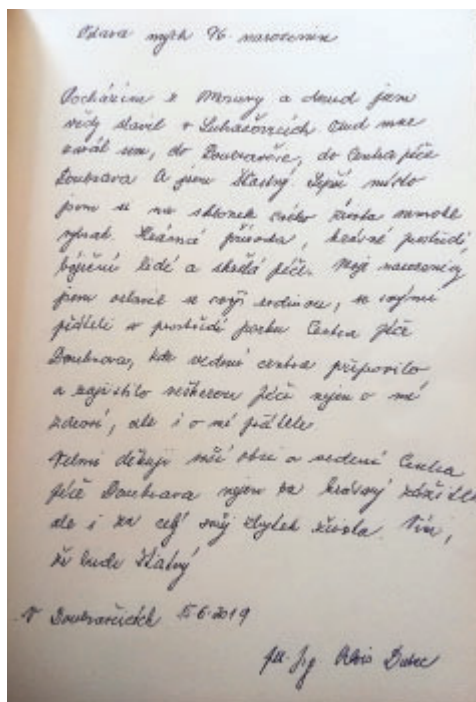 Oslava mých 96. narozenin
Pocházím z Moravy a dosud jsem
vždy slavil v Luhačovicích. Osud mne
zavál sem, do Doubravčic, do Centra péče
Doubrava. A jsem šťastný. Lepší místo
jsem si na sklonek svého života nemohl
vybrat. Krásná příroda, krásné prostředí,
báječní lidé a skvělá péče. Moje narozeniny
jsem oslavil se svojí rodinou, se svými
přáteli v prostředí parku Centra péče
Doubrava, kde vedení centra připravilo
a zajistilo veškerou péči nejen o mé
zdraví, ale i o mé přátele.
Velmi děkuji naší obci a vedení Centra
péče Doubrava nejen za krásný zážitek
ale i za celý svůj zbytek života. Vím,
že bude šťastný
V Doubravčicích 15.6.2019
Ing. Alois